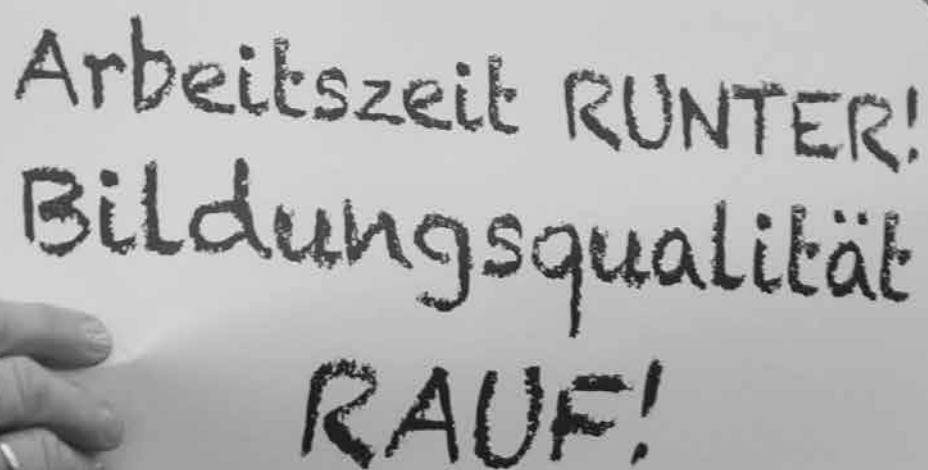 Arbeitszeit RUNTER!
Bildungsqualität
RAUF!